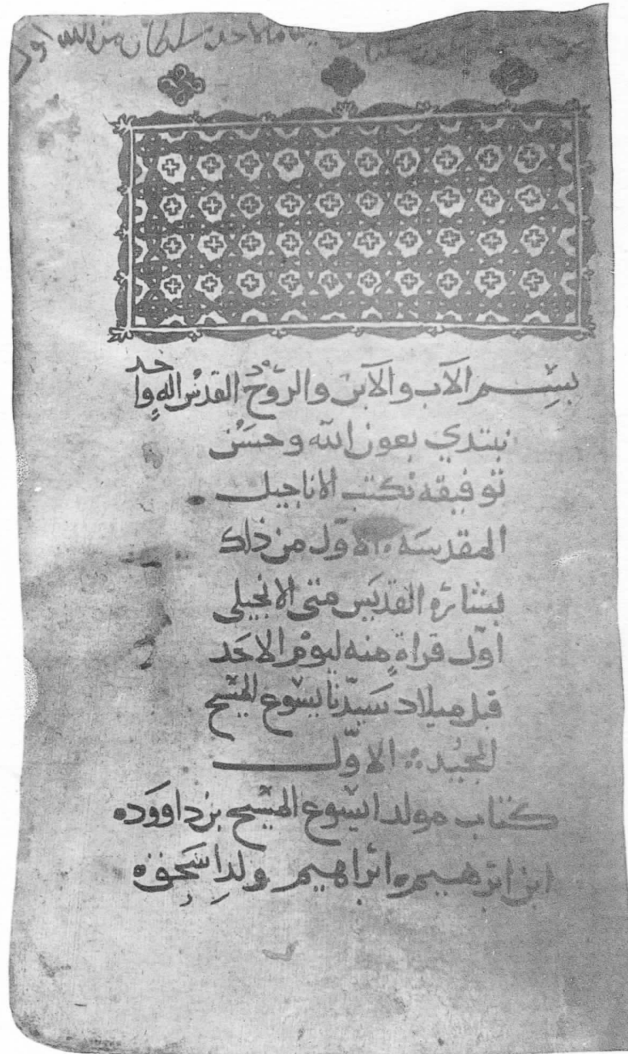 بسم الآب والآبن والروح القدس اله واحد
نبتدي بعون الله وحسن
توفيقه نكتب الاناجيل
المقدسه الاول من ذلك
بشارة القديس متى الانجيلي
اول قراة منه ليوم الاحد
قبل ميلاد سيدنا يسوع المسيح
المجيد الاول
كتاب مولد ايسوع المسيح بن داووده
ابن ابرهيم ه ابراهيم ولد اسحق ه